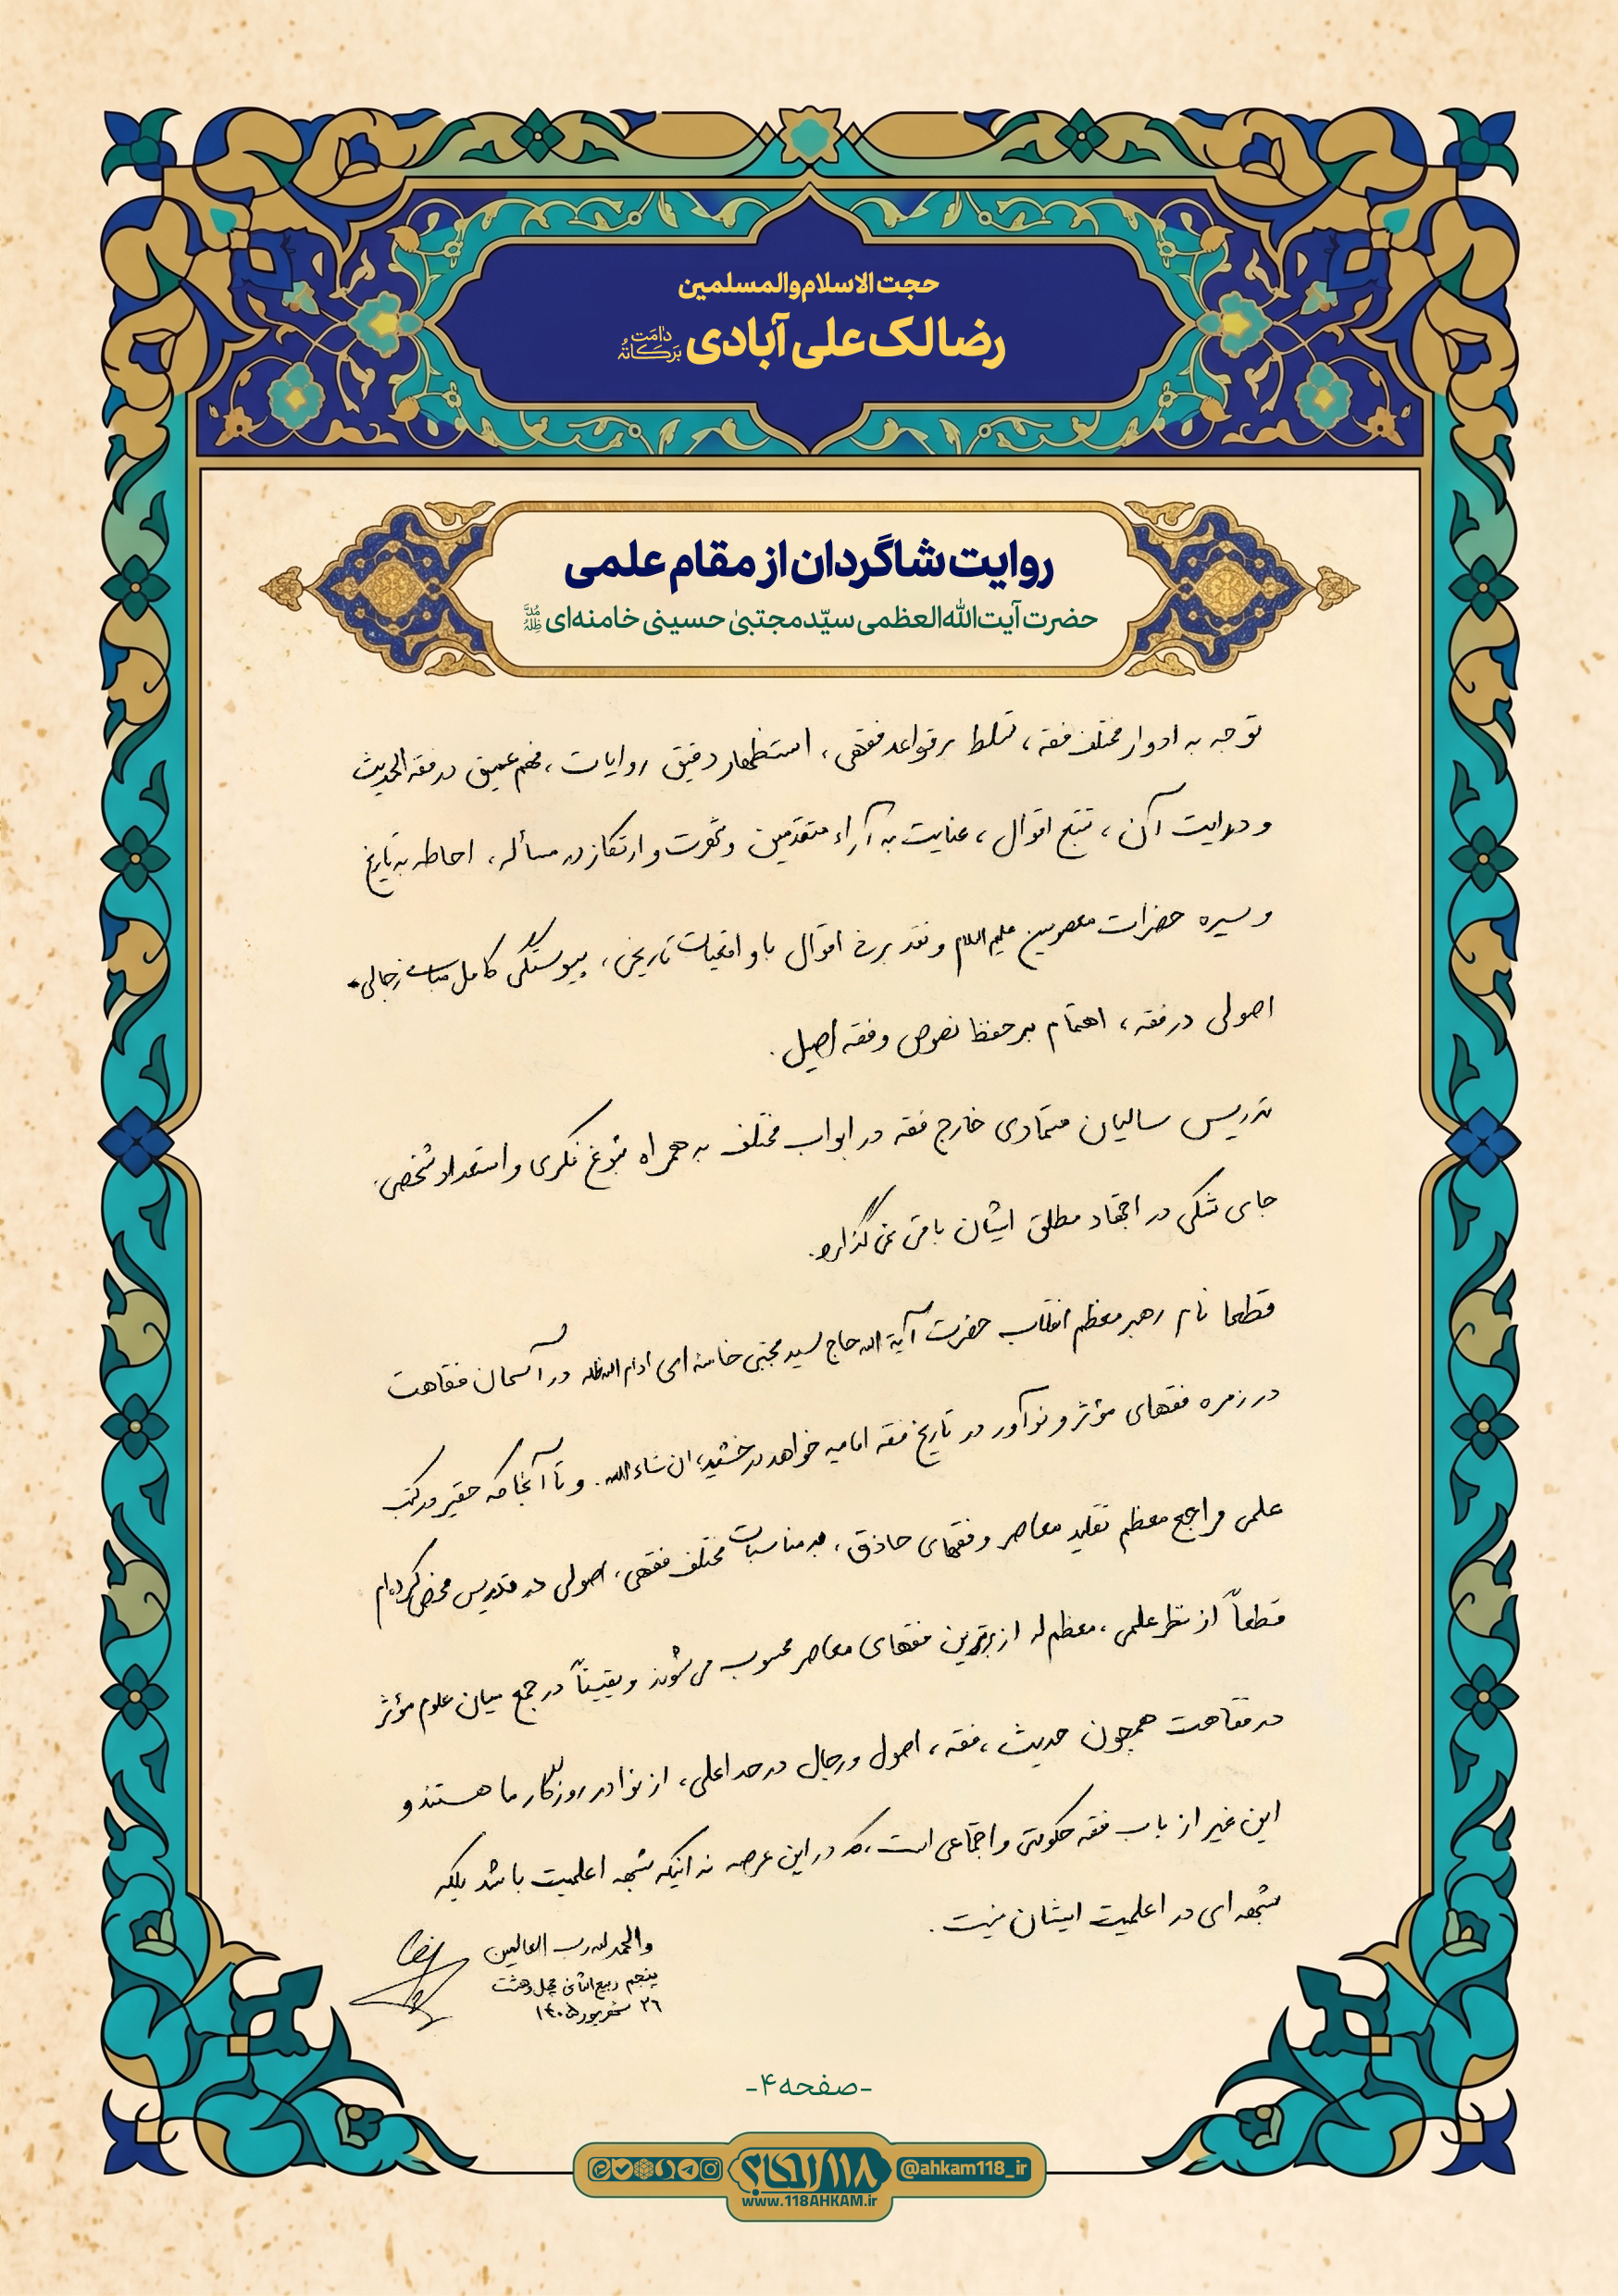 حجت الاسلام والمسلمین
رضا لک علی آبادی دامَت بَرَکاتُهُ
روایت شاگردان از مقام علمی
حضرت آیت‌الله‌العظمی سیّد مجتبیٰ حسینی خامنه‌ای مُدَّ ظِلُّهُ
توجه به ادوار مختلف فقه، تسلط بر قواعد فقهی، استظهار دقیق روایات، فهم عمیق در فقه الحدیث
و درایت آن، تتبع اقوال، عنایت به آراء متقدمین و شهرت و ارتکاز در مسأله، احاطه به تاریخ
و سیره حضرات معصومین علیهم السلام و نقد برخی اقوال با واقعیات تاریخی، پیوستگی کامل مبانی رجالی-
اصولی در فقه، اهتمام بر حفظ نصوص و فقه اصیل.
تدریس سالیان متمادی خارج فقه در ابواب مختلف به همراه نبوغ فکری و استعداد شخصی،
جای شکی در اجتهاد مطلق ایشان باقی نمی گذارد.
قطعا نام رهبر معظم انقلاب حضرت آیة الله حاج سید مجتبی خامنه ای ادام الله ظله در آسمان فقاهت
در زمره فقهای مؤثر و نوآور در تاریخ فقه امامیه خواهد درخشید، ان شاء الله. و تا آنجا که حقیر در کتب
علمی مراجع معظم تقلید معاصر و فقهای حاذق، به مناسبات مختلف فقهی، اصولی در تدریس فحص کرده‌ام
قطعاً از نظر علمی، معظم له از برترین فقهای معاصر محسوب می شوند و یقیناً در جمع میان علوم مؤثر
در فقاهت همچون حدیث، فقه، اصول و رجال در حد اعلی، از نوادر روزگار ما هستند و
این غیر از باب فقه حکومتی و اجتماعی است، که در این عرصه نه اینکه شبهه اعلمیت باشد بلکه
شبهه ای در اعلمیت ایشان نیست.
والحمد لله رب العالمین
پنجم ربیع الثانی چهل و هشت
۲۶ شهریور ۱۴۰۵
-صفحه ۴-
۱۱۸ احکام
@ahkam118_ir
www.118AHKAM.ir